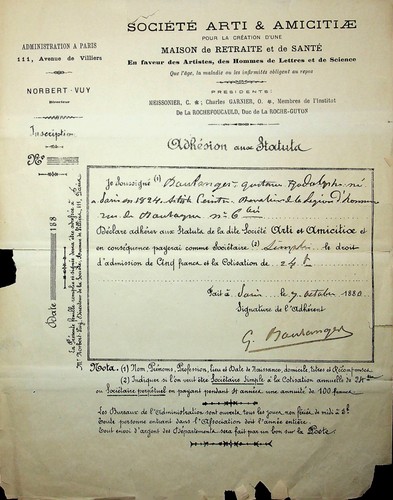 SOCIÉTÉ ARTI & AMICITIÆ
POUR LA CRÉATION D'UNE
MAISON de RETRAITE et de SANTÉ
En faveur des Artistes, des Hommes de Lettres et de Science
Que l'âge, la maladie ou les infirmités obligent au repos
PRÉSIDENTS:
MEISSONIER, C. ✻; Charles GARNIER, O. ✻, Membres de l'Institut
De LA ROCHEFOUCAULD, Duc de LA ROCHE-GUYON
ADMINISTRATION A PARIS
111, Avenue de Villiers
NORBERT-VUY
Directeur
Inscription
No
Adhésion aux Statuts
Je Soussigné (1) Boulanger Gustave Rodolphe né
à Paris en 1824 Artiste Peintre Chevalier de la Légion d'honneur
rue de no 6
Déclare adhérer aux Statuts de la dite Société Arti et Amicitiæ et
en conséquence payerai comme Sociétaire (2) Simple le droit
d'admission de Cinq francs et la Cotisation de 24 f
Fait à Paris le 7 octobre 1880
Signature de l'Adhérent
G. Boulanger
Date 188
La Présente feuille remplie et signée devra être adressée à
Mr Norbert-Vuy, Directeur de la Société, Avenue de Villiers 111, Paris
Nota. (1) Nom, Prénoms, Profession, lieu et Date de Naissance, domicile, titres et Récompenses
(2) Indiquer si l'on veut être Sociétaire Simple à la Cotisation annuelle de 24f
ou Sociétaire perpétuel en payant pendant années une annuité de 100 francs
Les Bureaux de l'Administration sont ouverts tous les jours non fériés de midi à
Toute personne entrant dans l'Association doit l'année entière.
Tout envoi d'argent des Départements sera fait par un bon sur la Poste